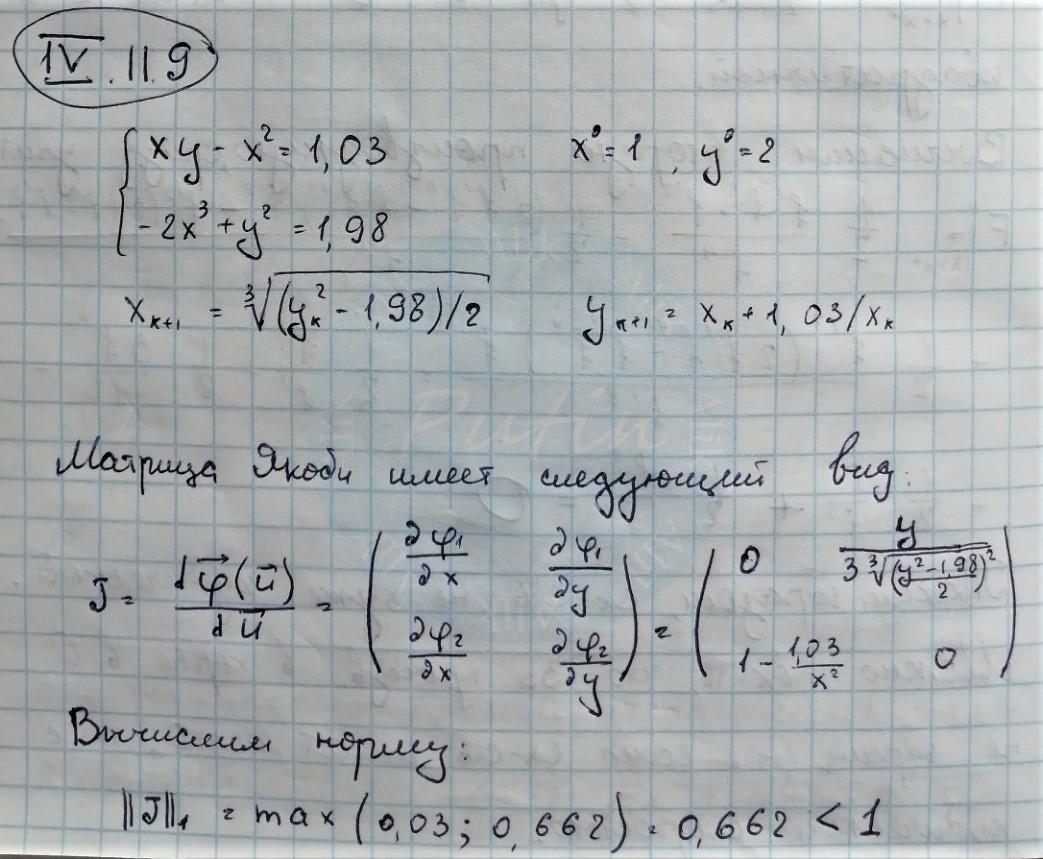 IV.II.9
xy - x² = 1,03    x⁰ = 1, y⁰ = 2
-2x³ + y² = 1,98
xₖ₊₁ = ∛((yₖ² - 1,98)/2)    yₖ₊₁ = xₖ + 1,03/xₖ
Putin
Матрица Якоби имеет следующий вид:
J = dφ⃗(u⃗)/du⃗ = (∂φ₁/∂x ∂φ₁/∂y ; ∂φ₂/∂x ∂φ₂/∂y) = (0 y/(3∛((y²-1,98)/2)²) ; 1 - 1,03/x² 0)
Вычислим норму:
||J||₁ = max(0,03; 0,662) = 0,662 < 1